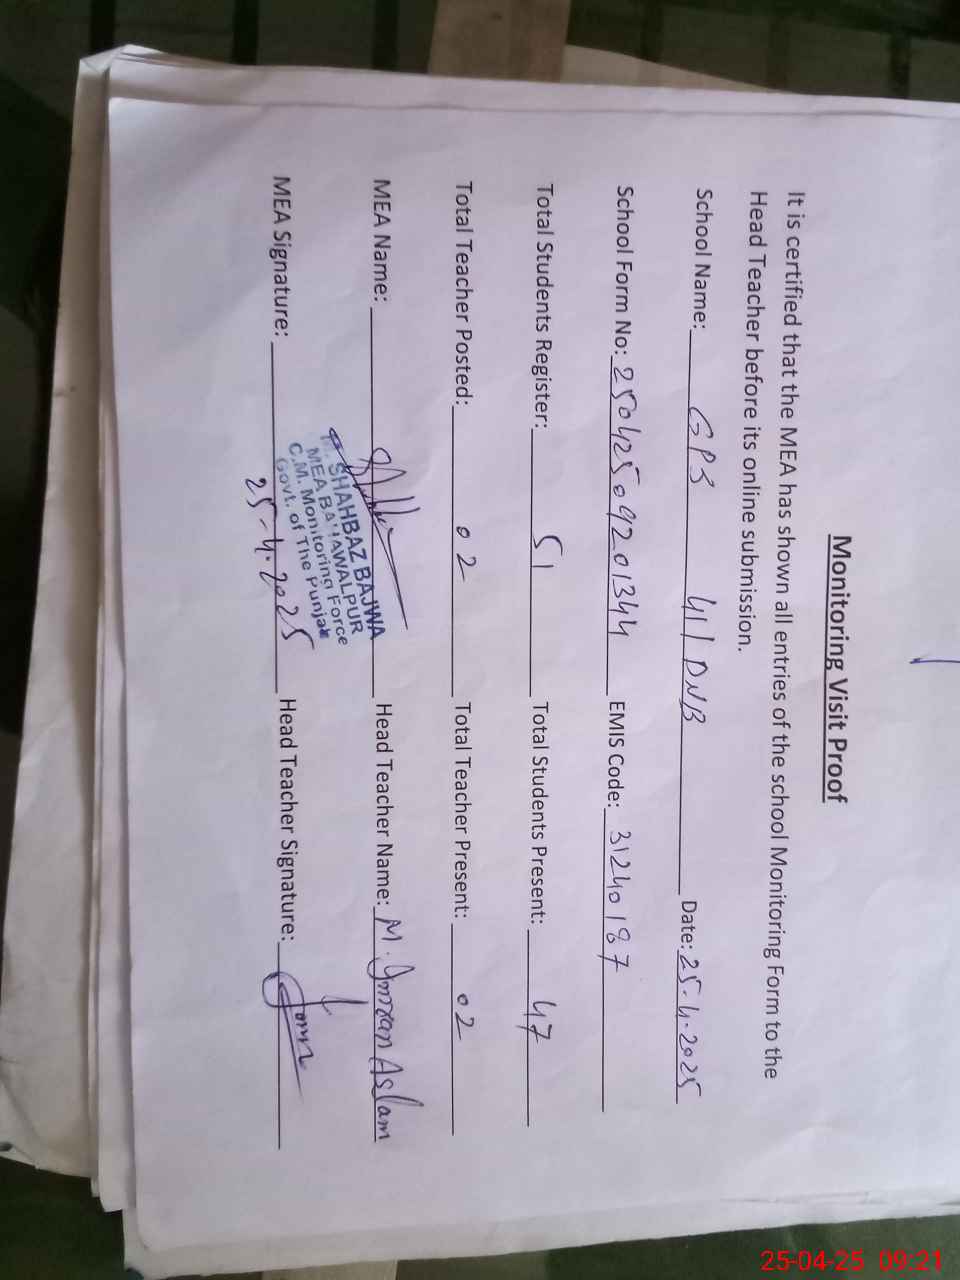 Monitoring Visit Proof
It is certified that the MEA has shown all entries of the school Monitoring Form to the
Head Teacher before its online submission.
School Name: GPS 41/DNB Date: 25.4.2025
School Form No: 25042509201344 EMIS Code: 31240187
Total Students Register: 51 Total Students Present: 47
Total Teacher Posted: 02 Total Teacher Present: 02
MEA Name: Head Teacher Name: M. Imran Aslam
SHAHBAZ BAJWA
MEA BAHAWALPUR
C.M. Monitoring Force
Govt. of The Punjab
MEA Signature: 25-4.2025 Head Teacher Signature:
25-04-25 09:21